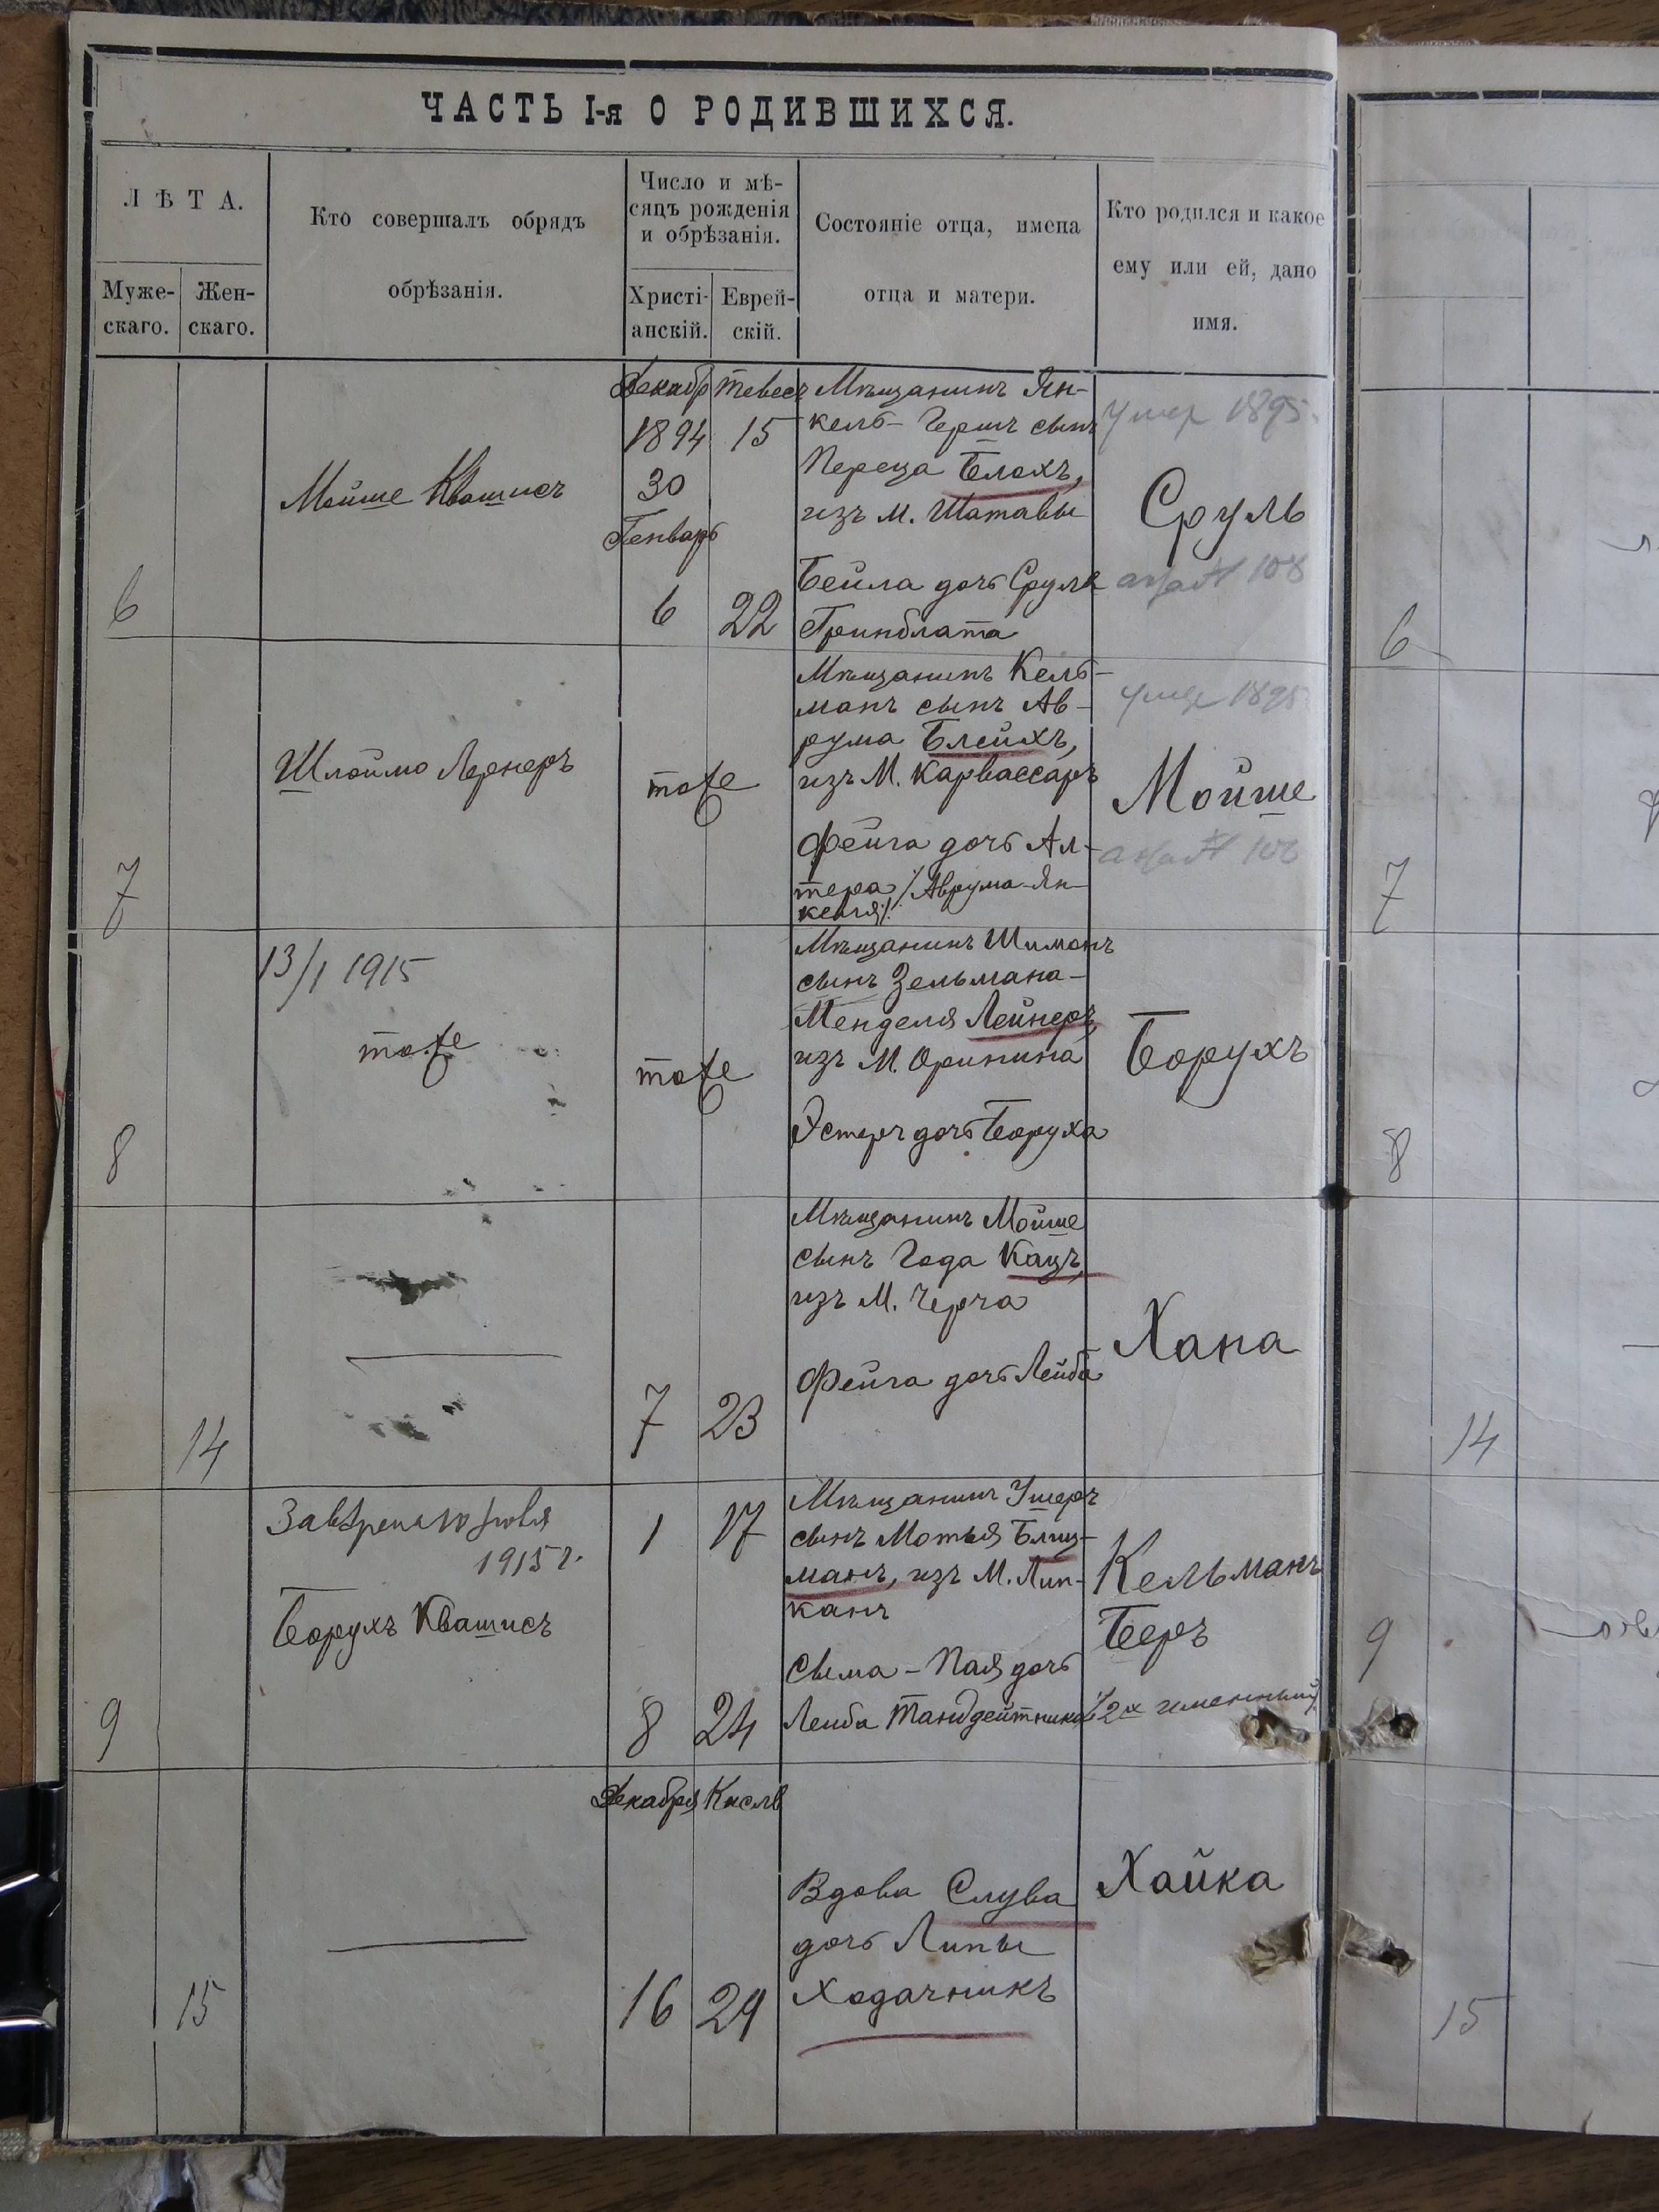 ЧАСТЬ I-я О РОДИВШИХСЯ.
ЛѢТА.
Муже-
скаго.
Жен-
скаго.
Кто совершалъ обрядъ
обрѣзанія.
Число и мѣ-
сяцъ рожденія
и обрѣзанія.
Христі-
анскій.
Еврей-
скій.
Состояніе отца, имена
отца и матери.
Кто родился и какое
ему или ей, дано
имя.
6
Мойше Квашисъ
Декабр
1894
30
Генварь
6
Тевесъ
15
22
Мѣщанинъ Ян-
кель-Гершъ сынъ
Переца Блахъ,
изъ м. Шатавы
Бейла дочь Сруля
Гринблата
умер 1895
Сруль
108
6
7
Шлоймо Лернеръ
тоже
Мѣщанинъ Кель-
манъ сынъ Ав-
рума Блейхъ,
изъ М. Карвассаръ
Фейга дочь Ал-
тера /Аврума-Ян-
келя/.
умер 1895
Мойше
7
8
13/1 1915
тоже
тоже
Мѣщанинъ Шиманъ
сынъ Зельмана-
Менделя Лейнеръ,
изъ М. Оринина
Эстеръ дочь Боруха
Борухъ
8
14
7
23
Мѣщанинъ Мойше
сынъ Года Кацъ,
изъ М. Черча
Фейга дочь Лейба
Хана
14
9
1915 г.
Борухъ Квашисъ
1
17
8
24
Мѣщанинъ Ушеръ
сынъ Мотья Блиц-
манъ, изъ М. Лип-
канъ
Сыма-Пая дочь
Лейба Тандейтника
Кельманъ
Беръ
/2х именный/
9
15
Декабря
16
Кислв
29
Вдова Слува
дочь Липы
Ходачникъ
Хайка
15